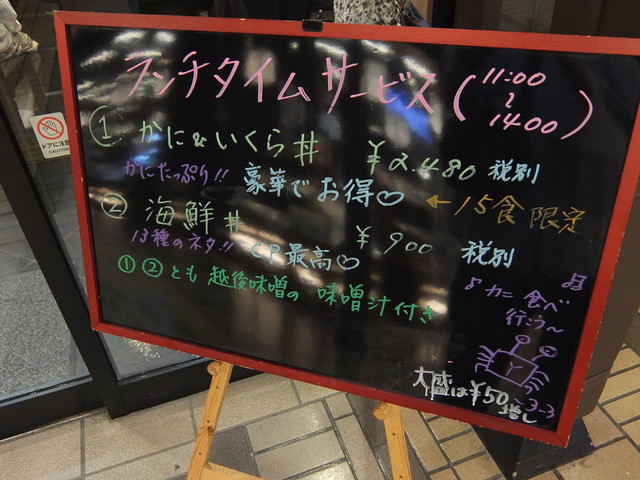 ランチタイムサービス (11:00
～
1400)
① かに&いくら丼 ¥2.480 税別
かにたっぷり!! 豪華でお得♡ ←15食限定
② 海鮮丼 ¥900 税別
13種のネタ!! CP最高♡
①②とも 越後味噌の 味噌汁付き
♪カニ食べ
行こう〜
大盛は¥50
増し
ドアに注意
CAUTION